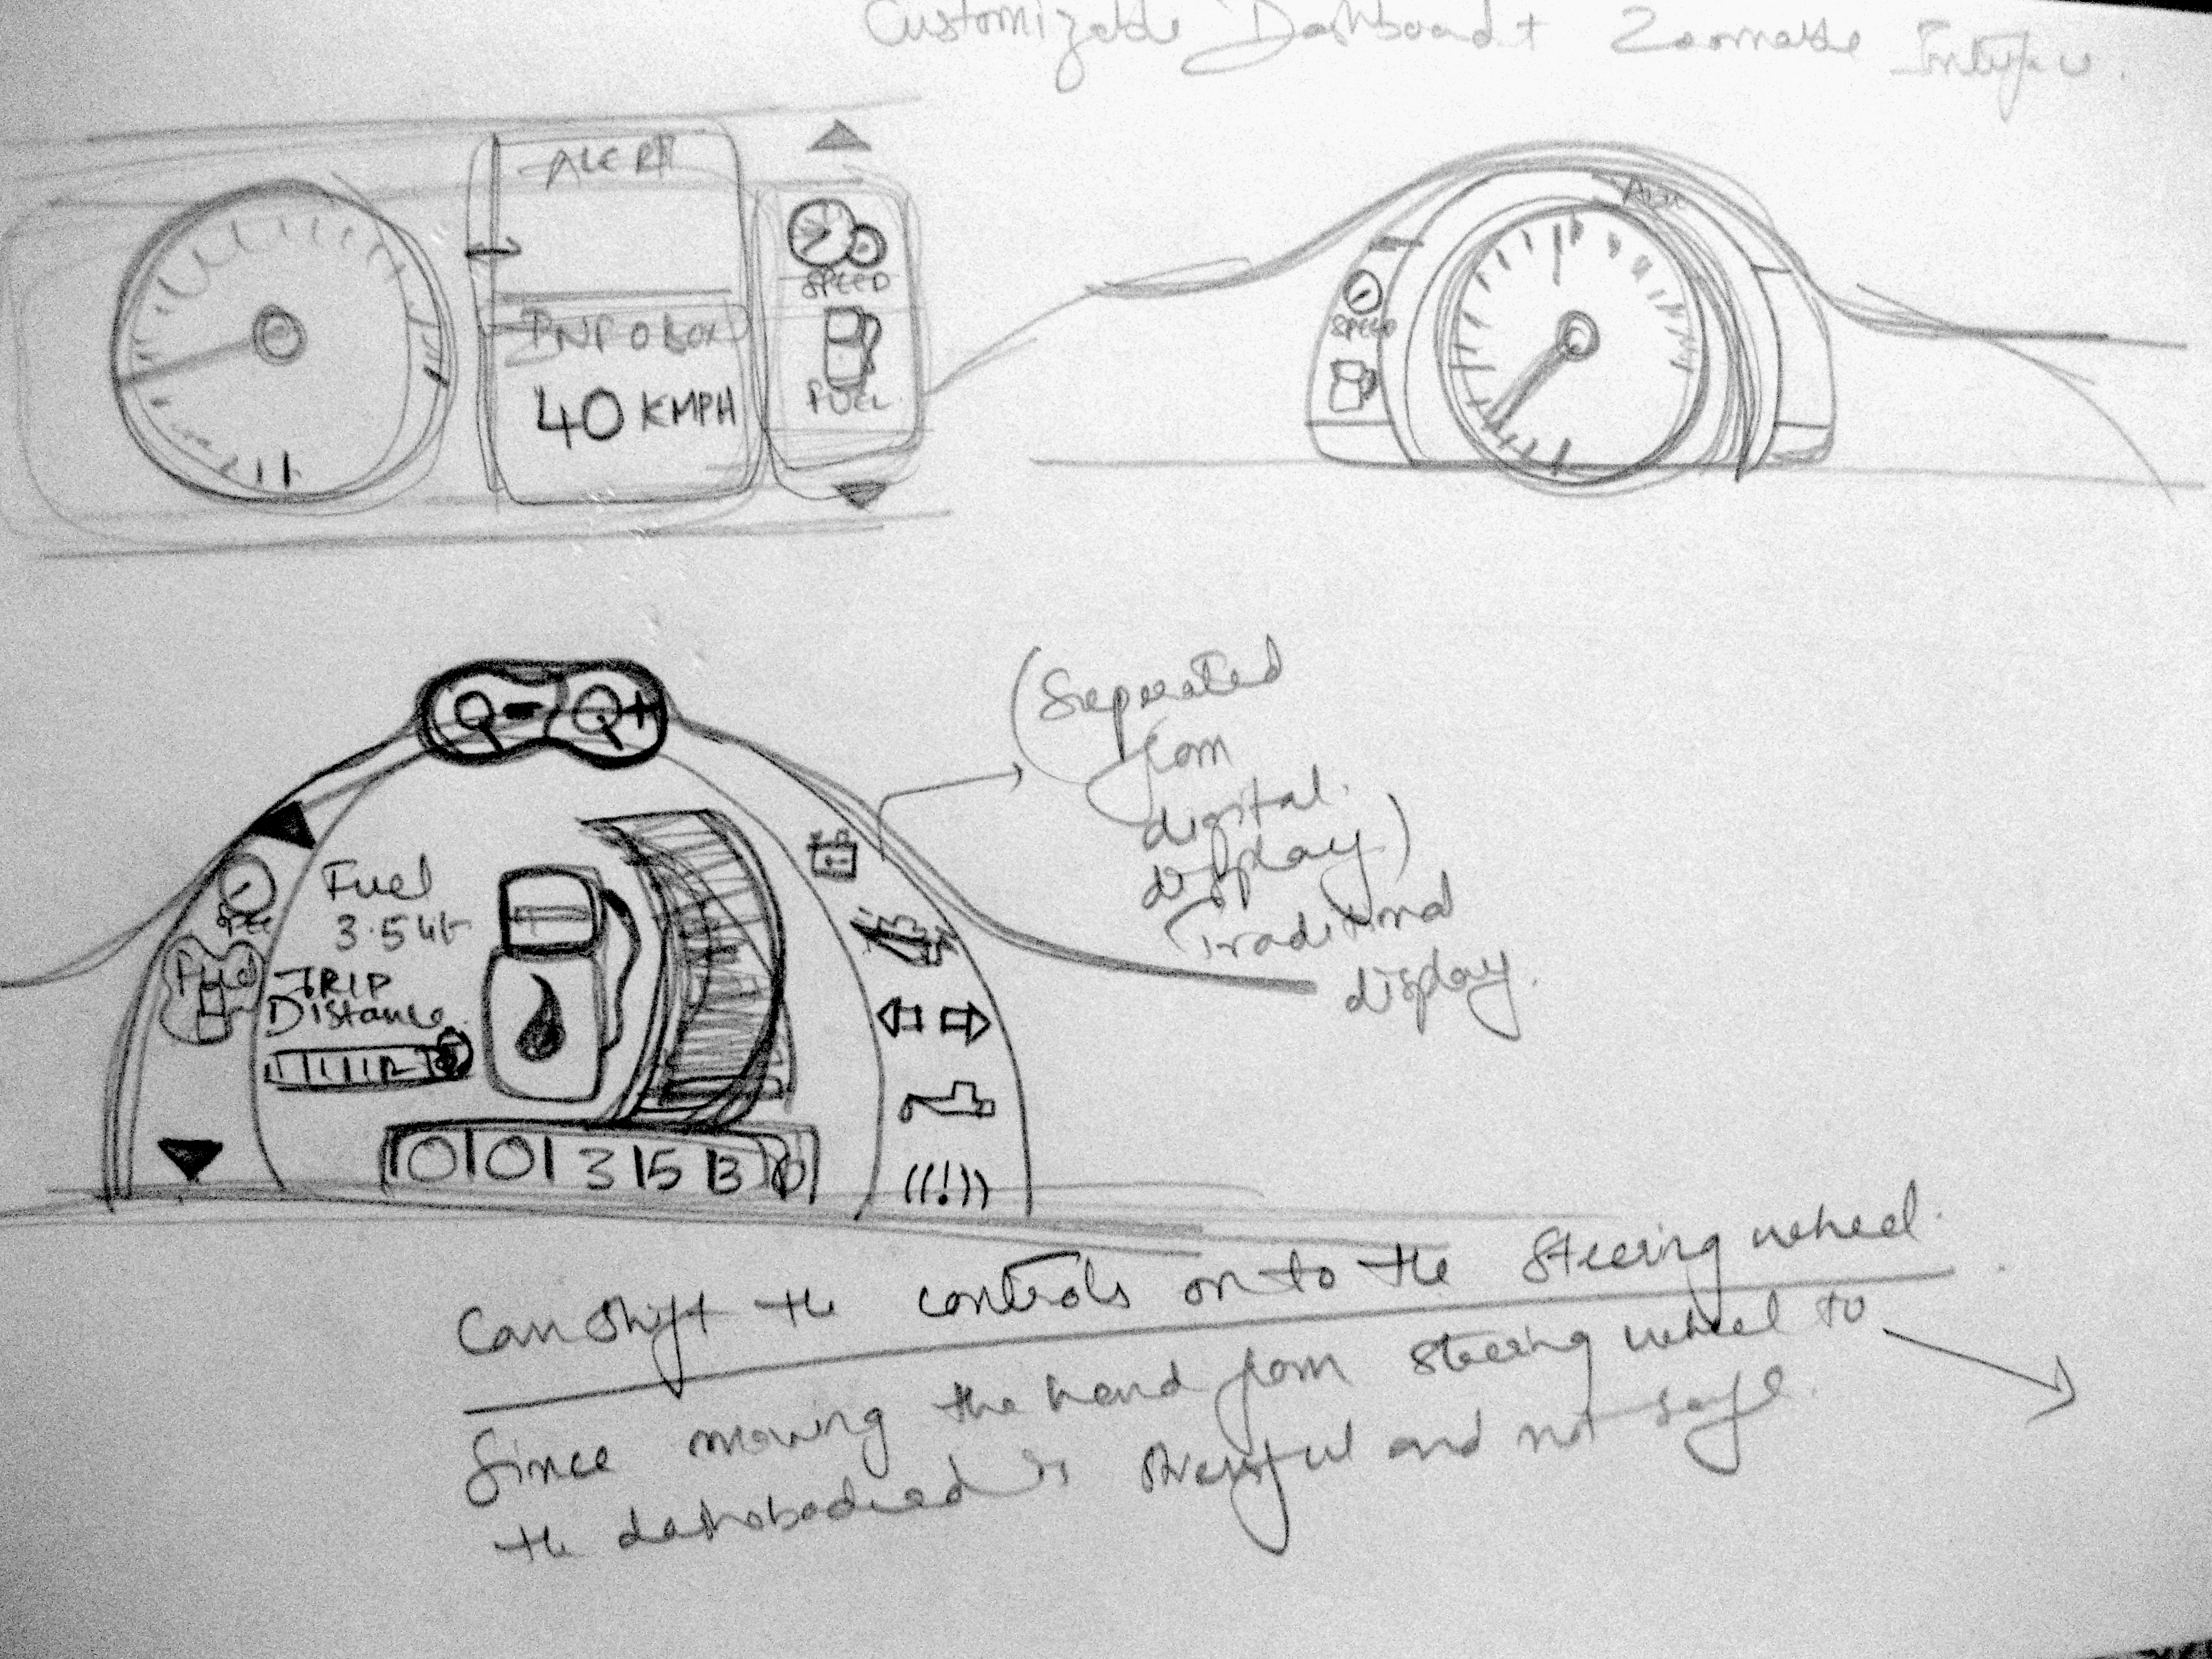 Customizable Dashboard + Zoomable Interface.
ALERT
SPEED
INFO BOX
40 KMPH
FUEL
SPEED
Fuel
3.5 lit
SPEE
Fuel
TRIP
Distance
0 0 3 5 3
(Seperated
from
digital
display)
Traditional
display.
Can shift the controls on to the steering wheel.
Since moving the hand from steering wheel to
the dashboard is stressful and not safe.